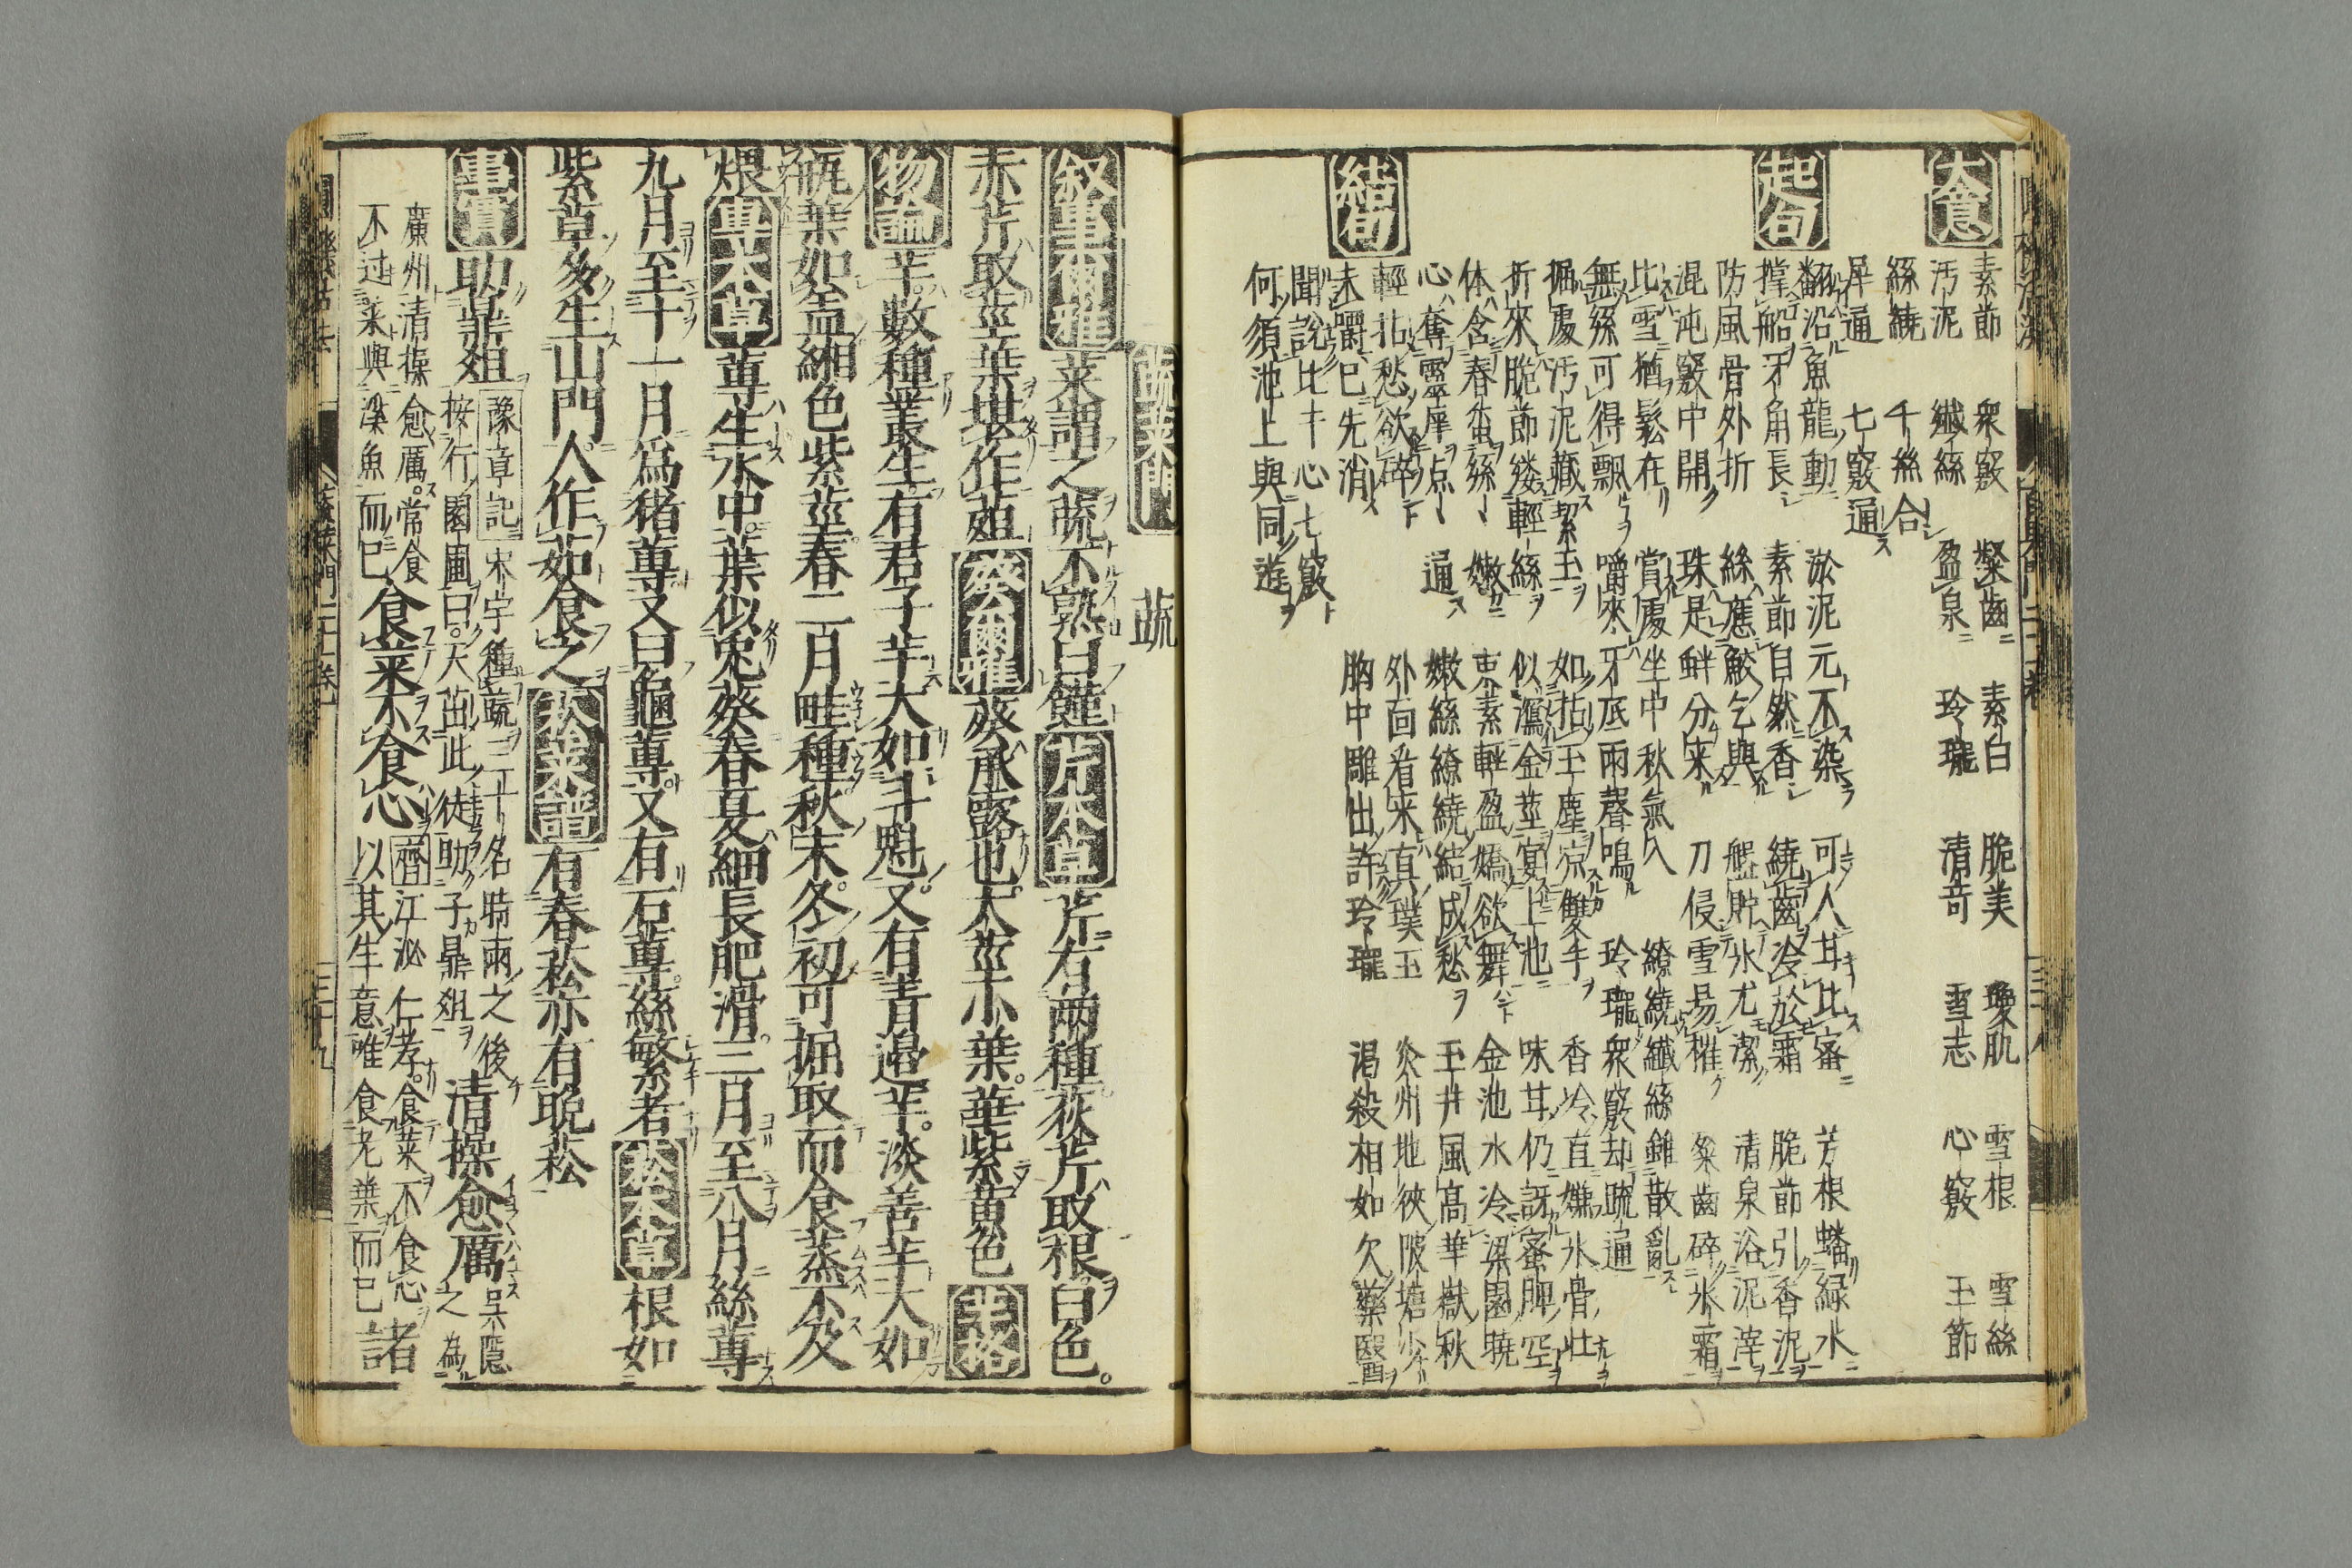 大意
素節 衆竅 粲齒 素白 脆美 瓊肌 雪根 雪絲
汚泥 纖絲 盈泉 玲瓏 清奇 雪志 心竅 玉節
絲繞 千絲合
犀通 七竅通
起句
翻沿魚龍動 淤泥元不染 可人甘比蜜 芳根蟠緑水
撑船牙角長 素節自然香 繞齒冷於霜 脆節引香泥
防風骨外折 絲應鮫乞與 盤貯氷尤潔 清泉浴泥滓
混沌竅中開 珠是蚌分来 刀侵雪易摧 粲齒碎氷霜
比雪猶鬆在 嘗處坐中秋氣入 繚繞纖絲錐散亂
無絲可得飄 嚼來牙底雨聲鳴 玲瓏衆竅却疏通
掘處汚泥藏絜玉 如拈玉塵凉雙手 香冷直嫌氷骨壯
折來脆節縷輕絲 似瀉金莖宴上池 味甘仍訝蜜脾空
体含春蚕絲〻嫩 束素輕盈嬌欲舞 金池水冷梁園曉
心奪靈犀点〻通 嫩絲繚繞結成愁 玉井風高華嶽秋
輕拈愁欲碎 外面看来真璞玉 炎州地狹陂塘少
結句
未嚼已先消 胸中雕出許玲瓏 渇殺相如欠藥醫
聞説比干心七竅
何須池上與同遊
蔬菜門 蔬
叙事爾雅 菜謂之蔬不熟曰饉 芹本草 芹有兩種荻芹取根白色。
赤芹取莖葉堪作葅 葵爾雅 葵承露也大莖小葉華紫黄色 芋格
物論 芋數種叢生有君子芋大如斗魁又有青邉芋淡善芋大如
瓶葉如盖緗色紫莖春二月畦種秋末冬初可掘取而食蒸不及
煨 蓴本草 蓴生水中葉似兎葵春夏細長肥滑三月至八月絲蓴
九月至十一月爲猪蓴又曰龜蓴又有石蓴絲繁者 菘本草 根如
紫草多生山門人作茹食之 菘菜譜 有春菘亦有晩菘
事實 助鼎俎 豫章記 宋宇種蔬三十名時雨之後
按行園圃曰天茁此徒助子鼎俎 清操愈厲 呉隱之為
廣州清操愈厲常食
不过菜與滐魚而已 食菜不食心 齊江泌仁孝食菜不食心
以其生意唯食老葉而已 諸